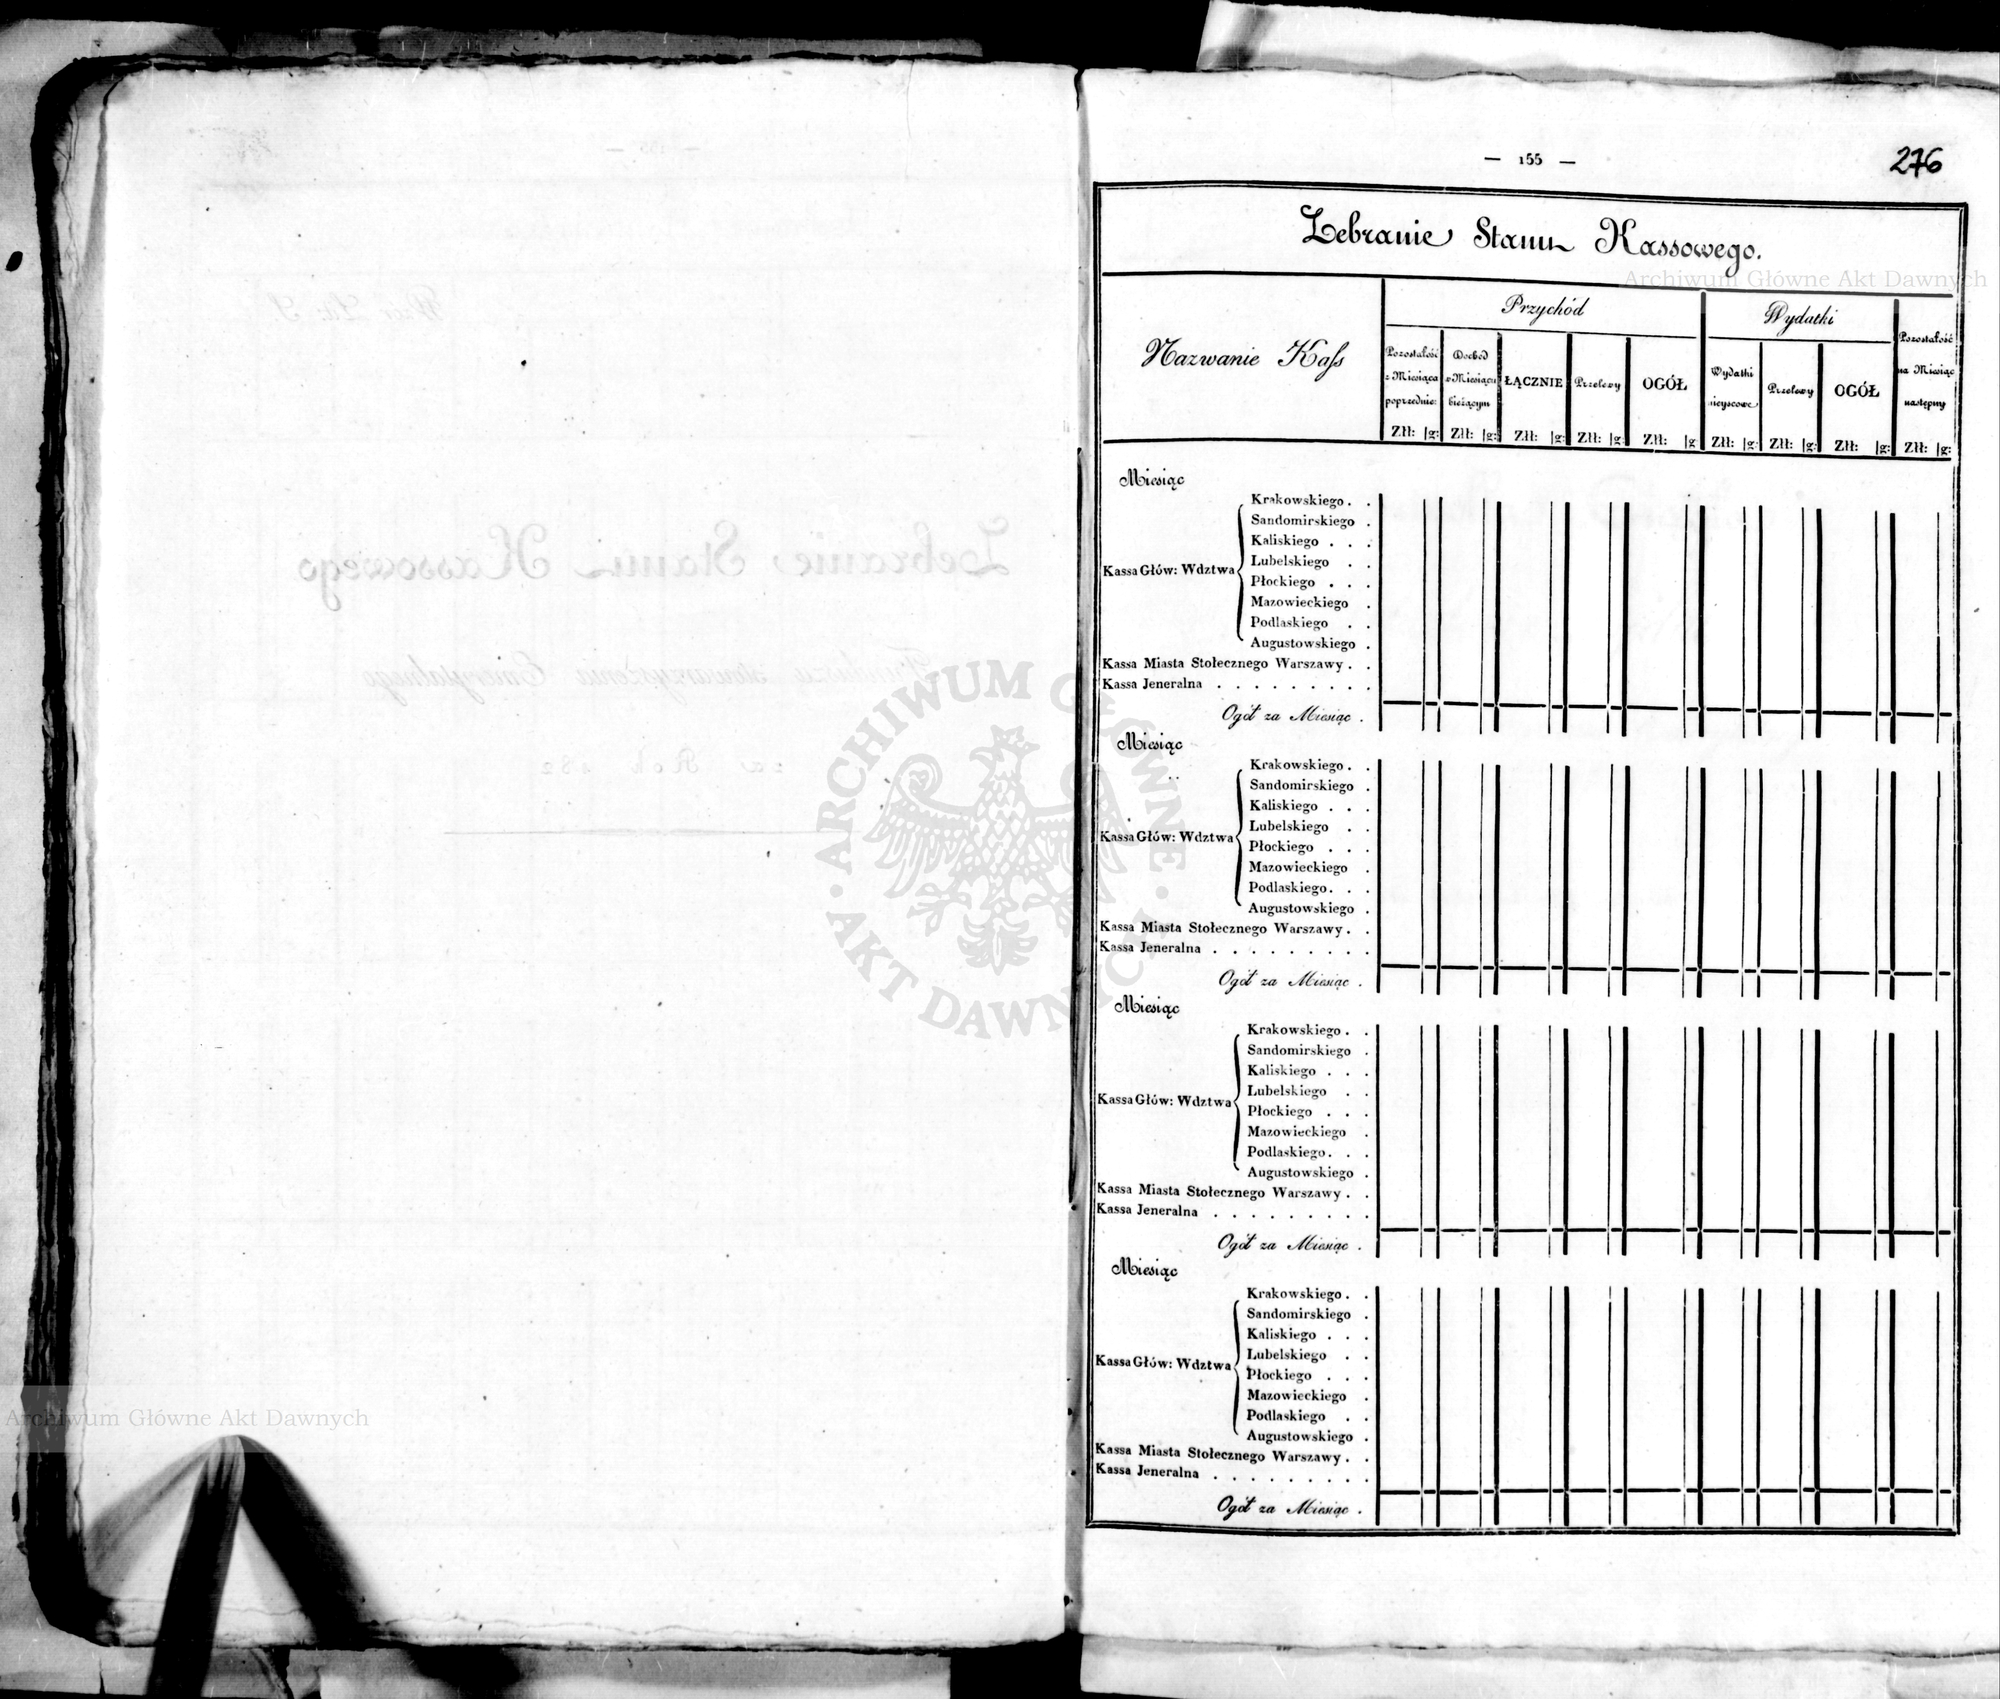 — 155 —
276
Zebranie Stanu Kassowego.
Nazwanie Kass
Przychód
Wydatki
Pozostałość na Miesiąc następny
Pozostałość z Miesiąca poprzednie:
Dochód w Miesiącu bieżącym
ŁĄCZNIE
Przelewy
OGÓŁ
Wydatki mieyscowe
Przelewy
OGÓŁ
Złł: |g: Złł: |g: Złł: |g: Złł: |g: Złł: |g Złł: |g: Złł: |g: Złł: |g: Złł: |g:
Miesiąc
Kassa Głów: Wdztwa
Krakowskiego . .
Sandomirskiego .
Kaliskiego . . .
Lubelskiego . .
Płockiego . . .
Mazowieckiego .
Podlaskiego . .
Augustowskiego .
Kassa Miasta Stołecznego Warszawy . .
Kassa Jeneralna . . . . . . . . .
Ogół za Miesiąc .
Miesiąc
Kassa Głów: Wdztwa
Krakowskiego . .
Sandomirskiego .
Kaliskiego . . .
Lubelskiego . .
Płockiego . . .
Mazowieckiego .
Podlaskiego . . .
Augustowskiego .
Kassa Miasta Stołecznego Warszawy . .
Kassa Jeneralna . . . . . . . . .
Ogół za Miesiąc .
Miesiąc
Kassa Głów: Wdztwa
Krakowskiego . .
Sandomirskiego .
Kaliskiego . . .
Lubelskiego . .
Płockiego . . .
Mazowieckiego .
Podlaskiego . . .
Augustowskiego .
Kassa Miasta Stołecznego Warszawy . .
Kassa Jeneralna . . . . . . . . .
Ogół za Miesiąc .
Miesiąc
Kassa Głów: Wdztwa
Krakowskiego . .
Sandomirskiego .
Kaliskiego . . .
Lubelskiego . .
Płockiego . . .
Mazowieckiego .
Podlaskiego . .
Augustowskiego .
Kassa Miasta Stołecznego Warszawy . .
Kassa Jeneralna . . . . . . . . .
Ogół za Miesiąc .
Archiwum Główne Akt Dawnych
Archiwum Główne Akt Dawnych
ARCHIWUM GŁÓWNE · AKT DAWNYCH ·